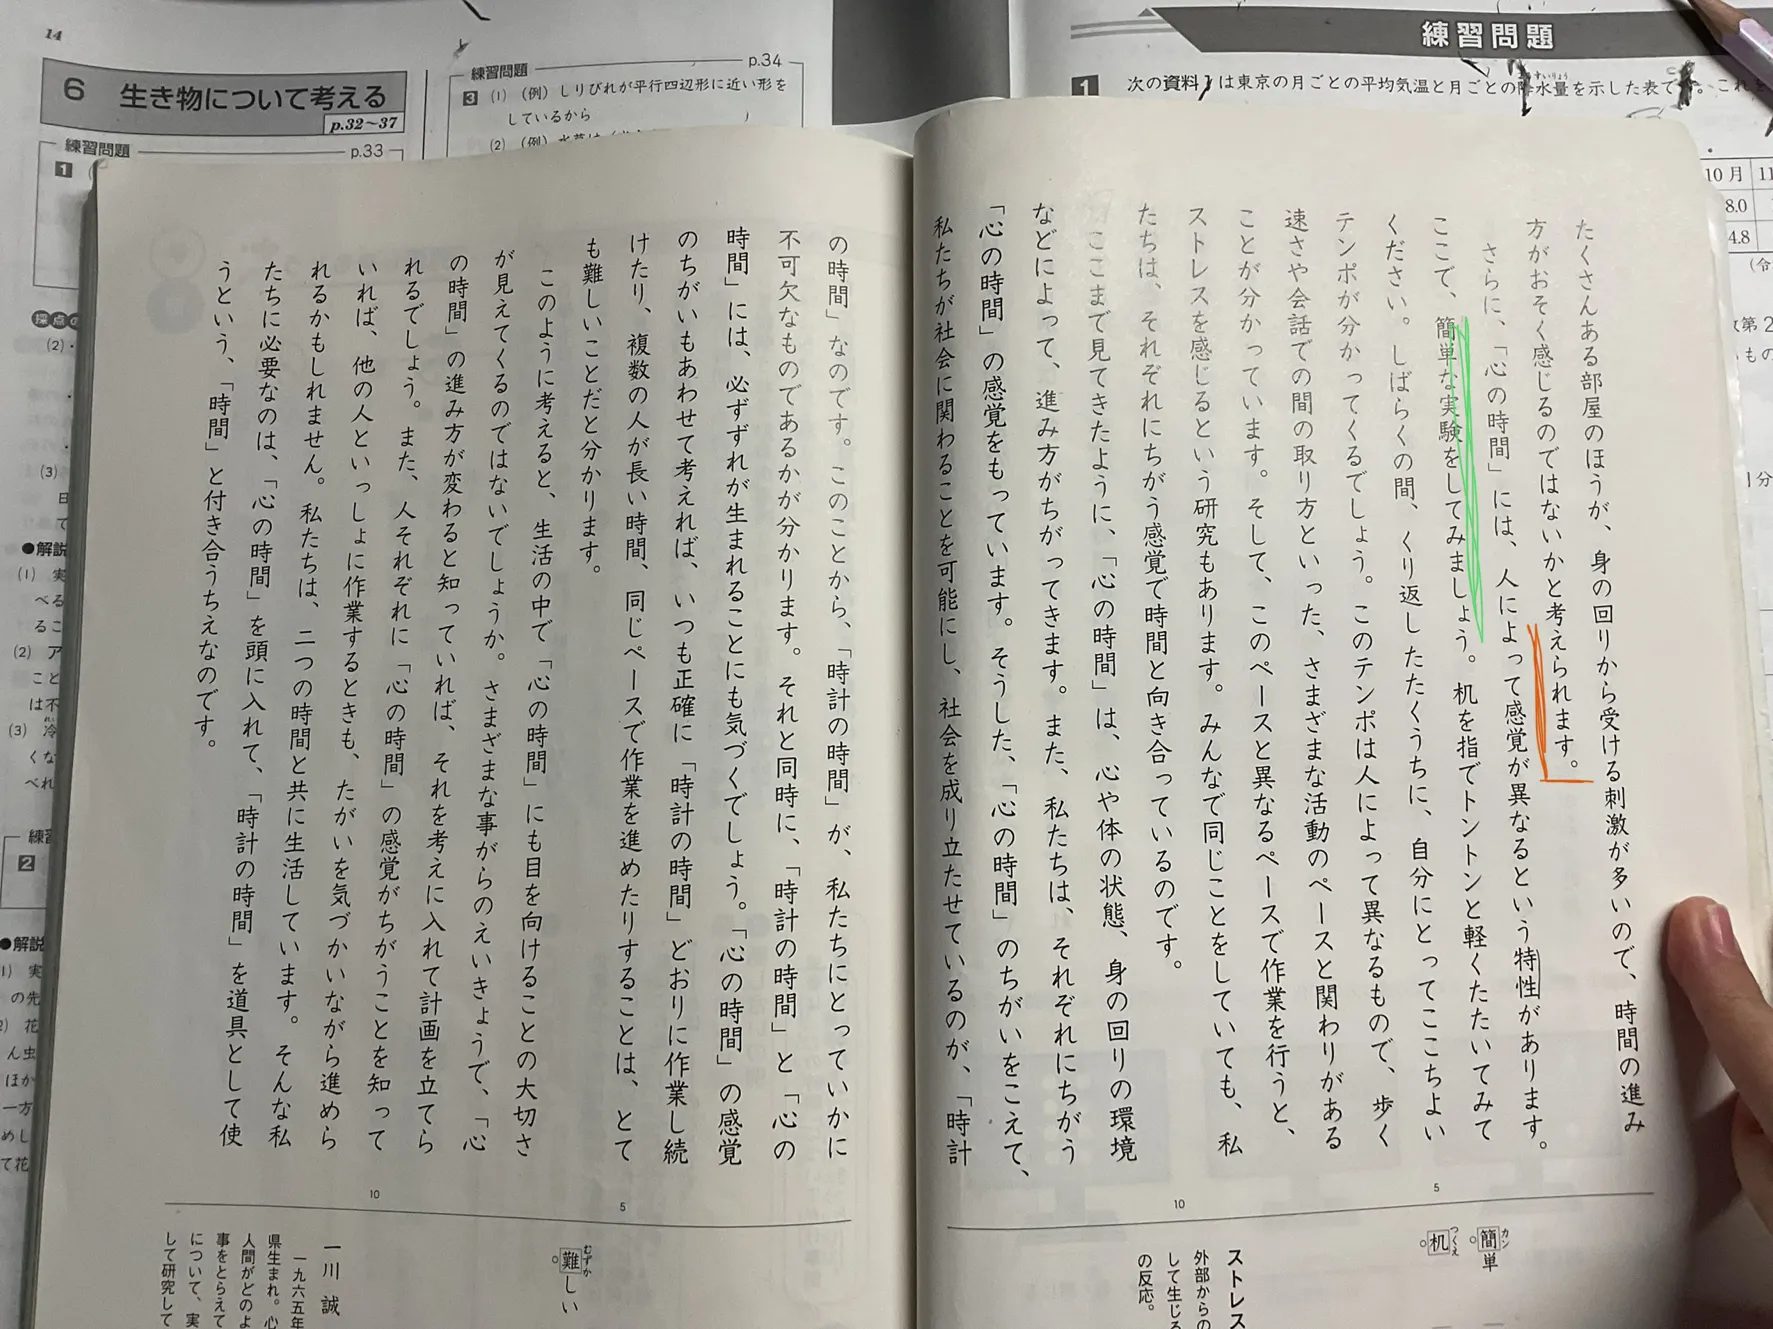 たくさんある部屋のほうが、身の回りから受ける刺激が多いので、時間の進み
方がおそく感じるのではないかと考えられます。
さらに、「心の時間」には、人によって感覚が異なるという特性があります。
ここで、簡単な実験をしてみましょう。机を指でトントンと軽くたたいてみて
ください。しばらくの間、くり返したたくうちに、自分にとってここちよい
テンポが分かってくるでしょう。このテンポは人によって異なるもので、歩く
速さや会話での間の取り方といった、さまざまな活動のペースと関わりがある
ことが分かっています。そして、このペースと異なるペースで作業を行うと、
ストレスを感じるという研究もあります。みんなで同じことをしていても、私
たちは、それぞれにちがう感覚で時間と向き合っているのです。
ここまで見てきたように、「心の時間」は、心や体の状態、身の回りの環境
などによって、進み方がちがってきます。また、私たちは、それぞれにちがう
「心の時間」の感覚をもっています。そうした、「心の時間」のちがいをこえて、
私たちが社会に関わることを可能にし、社会を成り立たせているのが、「時計
の時間」なのです。このことから、「時計の時間」が、私たちにとっていかに
不可欠なものであるかが分かります。それと同時に、「時計の時間」と「心の
時間」には、必ずずれが生まれることにも気づくでしょう。「心の時間」の感覚
のちがいもあわせて考えれば、いつも正確に「時計の時間」どおりに作業し続
けたり、複数の人が長い時間、同じペースで作業を進めたりすることは、とて
も難しいことだと分かります。
このように考えると、生活の中で「心の時間」にも目を向けることの大切さ
が見えてくるのではないでしょうか。さまざまな事がらのえいきょうで、「心
の時間」の進み方が変わると知っていれば、それを考えに入れて計画を立てら
れるでしょう。また、人それぞれに「心の時間」の感覚がちがうことを知って
いれば、他の人といっしょに作業するときも、たがいを気づかいながら進めら
れるかもしれません。私たちは、二つの時間と共に生活しています。そんな私
たちに必要なのは、「心の時間」を頭に入れて、「時計の時間」を道具として使
うという、「時間」と付き合うちえなのです。
5
10
5
10
簡単
カン
机
つくえ
ストレス
外部からの
して生じる
の反応。
難しい
むずか
一川 誠
一九六五年
県生まれ。心
人間がどのよ
事をとらえて
について、実
して研究して
14
6 生き物について考える
p.32~37
練習問題 p.33
1
練習問題 p.34
3 (1) (例) しりびれが平行四辺形に近い形を
しているから
(2) (例)
練習問題
1 次の資料1は東京の月ごとの平均気温と月ごとの降水量を示した表です。これを
10月 11
8.0
4.8
(令
第2
もの
1分
(2)
(3)
日
て
●解説
(1) 実
べる
るこ
(2) ア
こと
は不
(3) 冷
くな
べれ
練習
2
●解説
1) 実
の先
2) 花
ん虫
ほか
一方
めし
て花